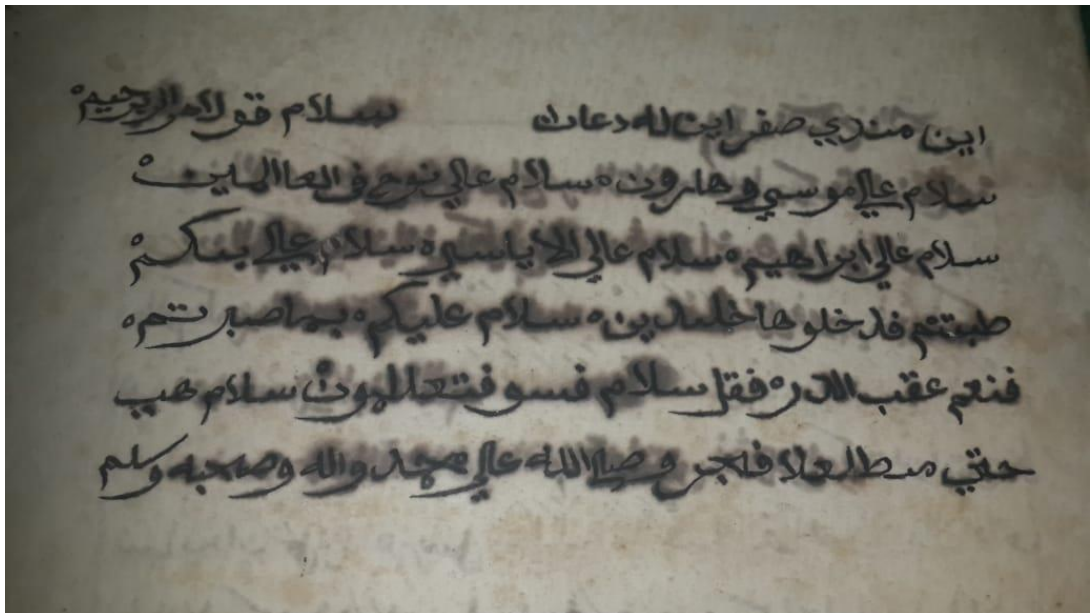 اين مندي صفر اين له دعان سلام قو لامر الرحيم
سلام عالي موسي وهارون سلام عالي نوح في العاالمين
سلام عالي ابراهيم سلام عالي الاياسي سلام عالي بنكم
طبتتم فد خلوها خلدين سلام عليكم بما صبرتم
فنعم عقب الدر فقل سلام فسوفتعللمون سلام هيب
حتي مطالعلا فلجر وصلي الله عالي محمد واله وصحبه وسلم